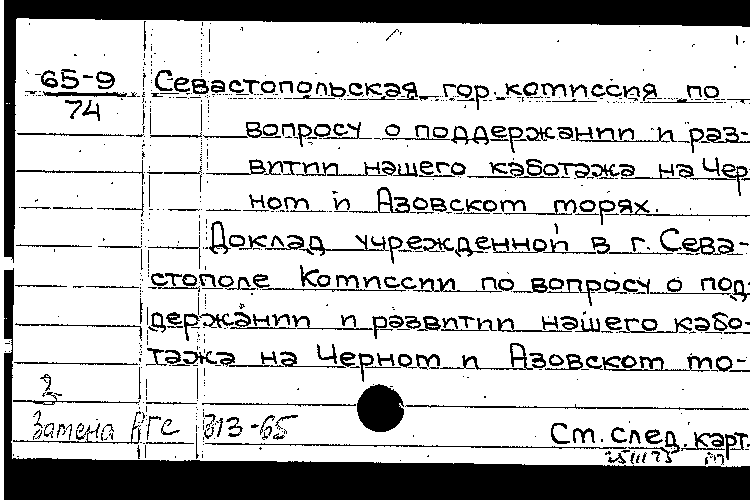 65-9
74
Севастопольская гор. комиссия по
вопросу о поддержании и раз-
витии нашего каботажа на Чер
ном и Азовском морях.
Доклад учрежденной в г. Сева-
стополе Комиссии по вопросу о под
держании и развитии нашего кабо-
тажа на Черном и Азовском мо-
З
Замена РГС 313-65
См. след. карт.